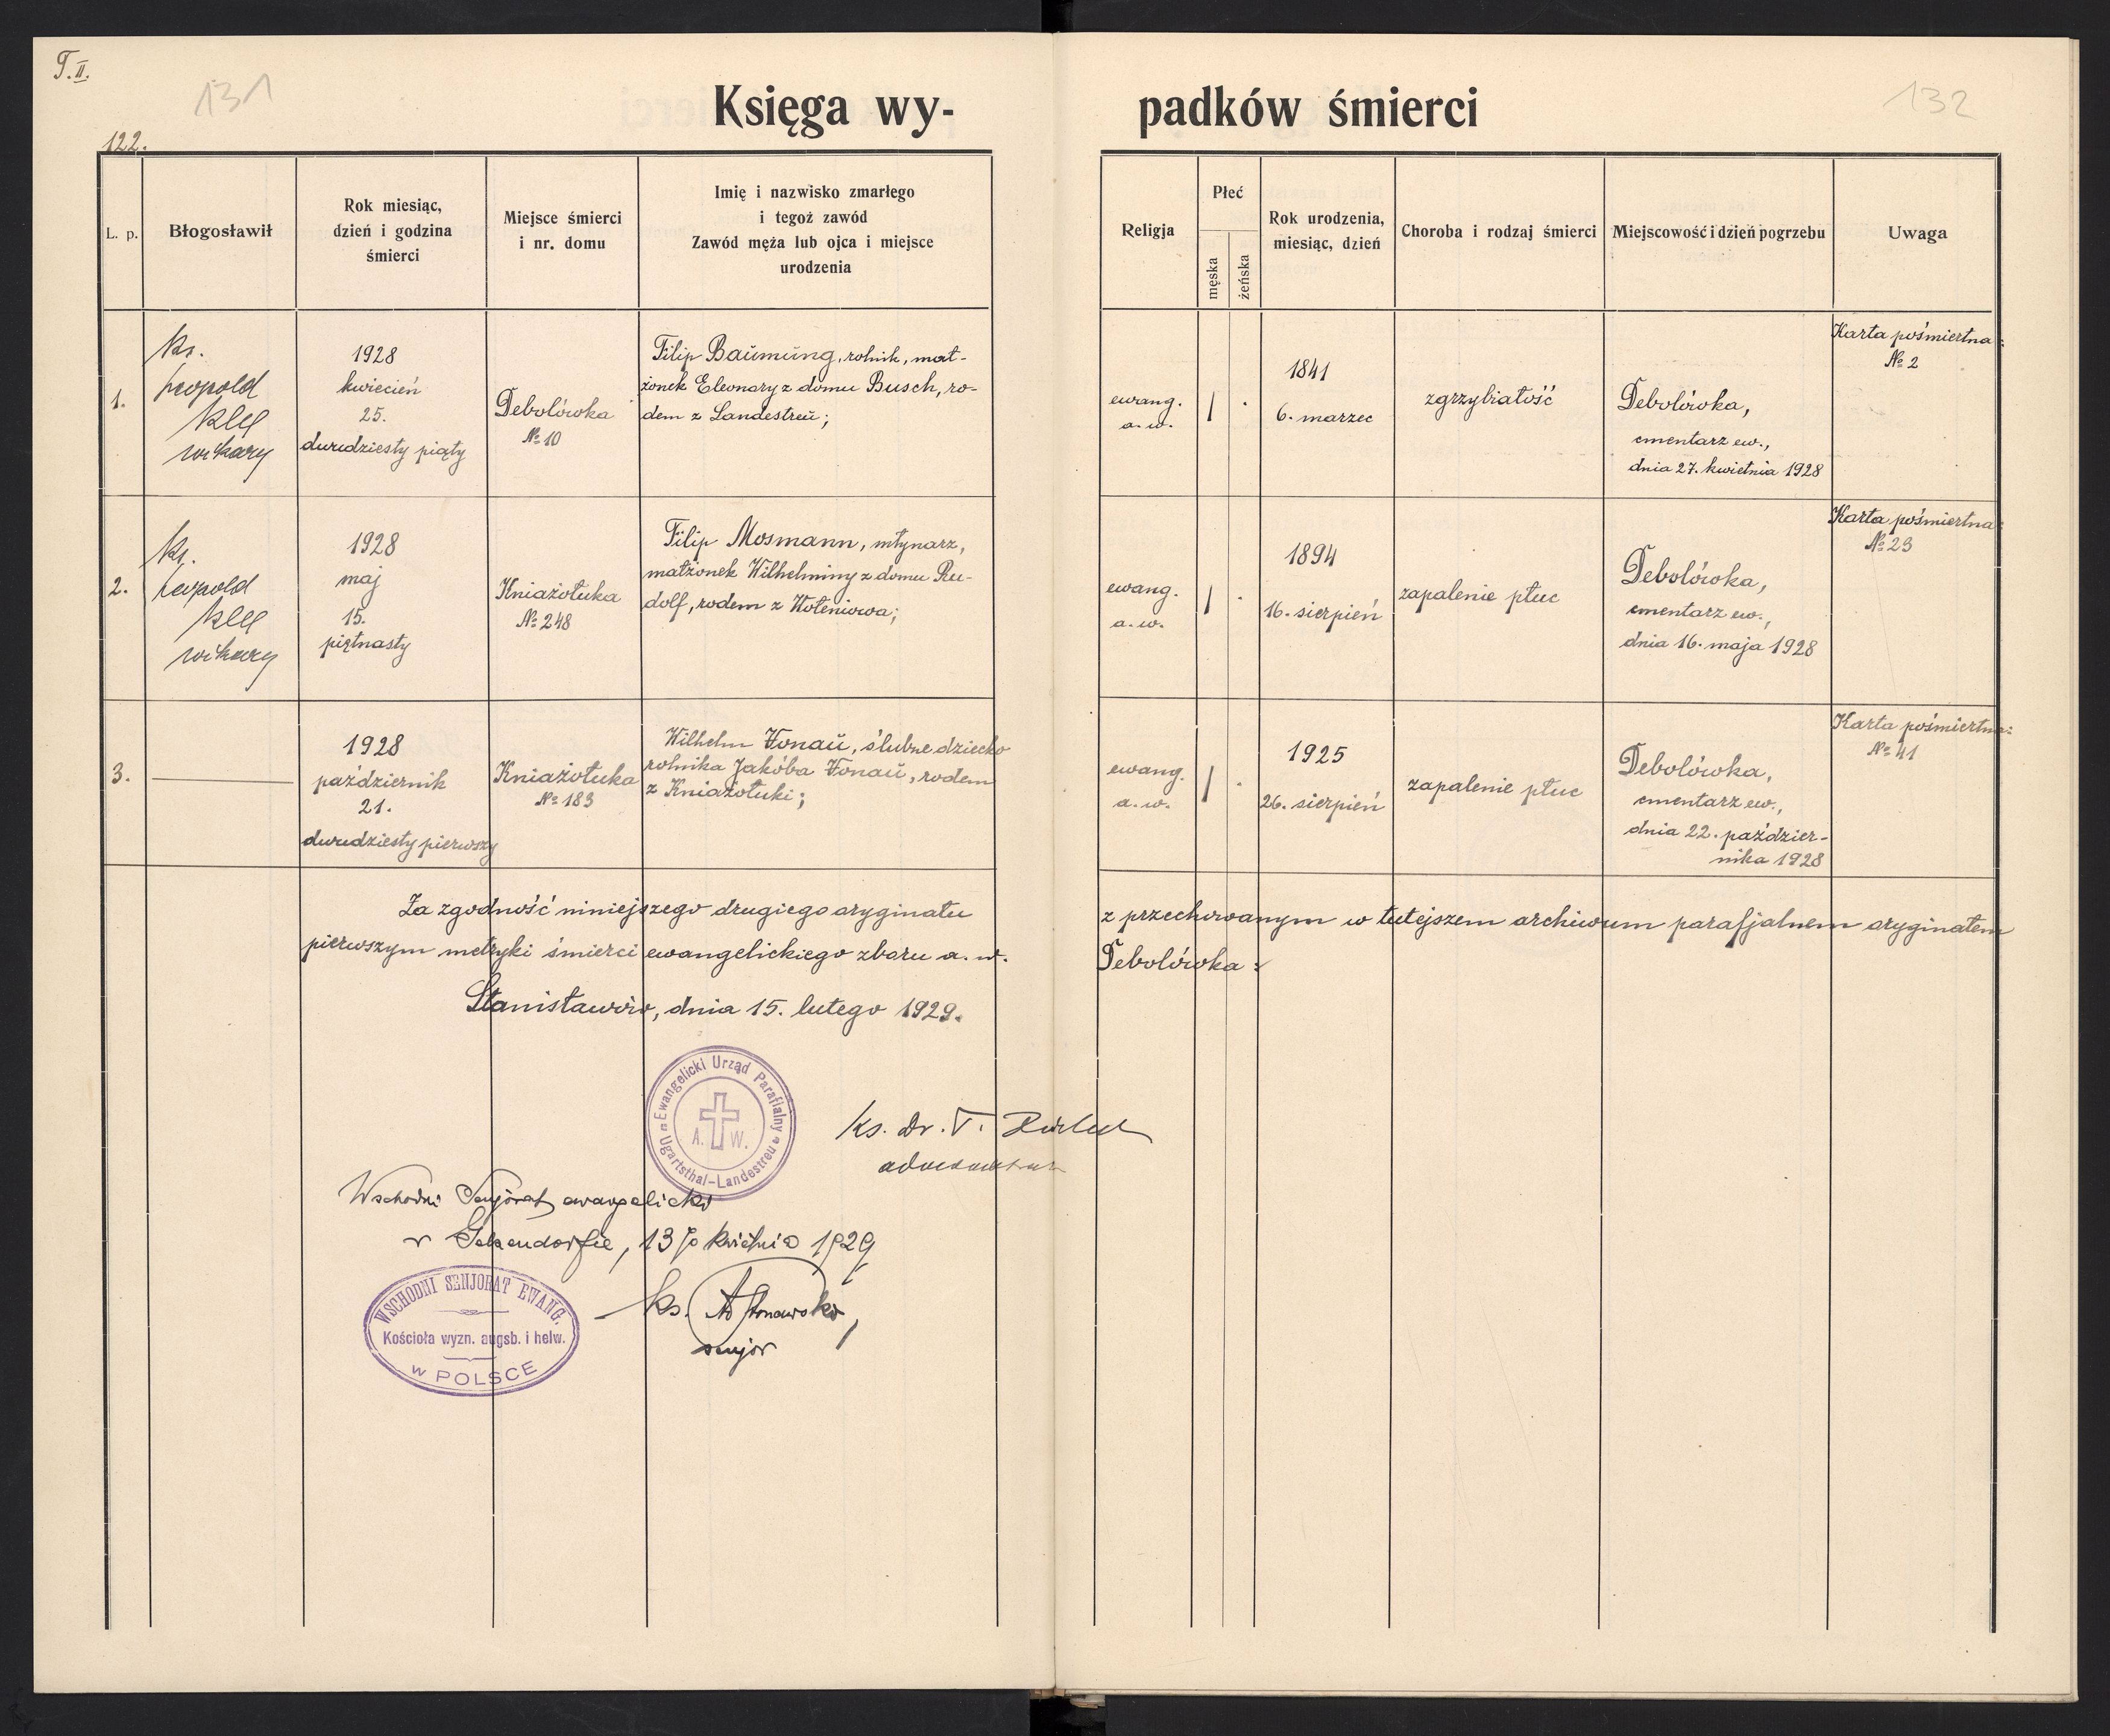 T. II.
131
132
Księga wy-
padków śmierci
122.
L. p.
Błogosławił
Rok miesiąc,
dzień i godzina
śmierci
Miejsce śmierci
i nr. domu
Imię i nazwisko zmarłego
i tegoż zawód
Zawód męża lub ojca i miejsce
urodzenia
Religja
Płeć
męska
żeńska
Rok urodzenia,
miesiąc, dzień
Choroba i rodzaj śmierci
Miejscowość i dzień pogrzebu
Uwaga
1.
ks.
Leopold
Klee
wikary
1928
kwiecień
25.
dwudziesty piąty
Debolówka
№ 10
Filip Baŭmŭng, rolnik, mał-
żonek Eleonory z domu Busch, ro-
dem z Landestreŭ;
ewang.
a. w.
1
1841
6. marzec
zgrzybiałość
Debolówka,
cmentarz ew.,
dnia 27. kwietnia 1928
Karta pośmiertna:
№ 2
2.
ks.
Leopold
Klee
wikary
1928
maj
15.
piętnasty
Kniaziołuka
№ 248
Filip Mosmann, młynarz,
małżonek Wilhelminy z domu Ru-
dolf, rodem z Hołeniowa;
ewang.
a. w.
1
1894
16. sierpień
zapalenie płuc
Debolówka,
cmentarz ew.,
dnia 16. maja 1928
Karta pośmiertna:
№ 23
3.
1928
październik
21.
dwudziesty pierwszy
Kniaziołuka
№ 183
Wilhelm Vonaŭ, ślubne dziecko
rolnika Jakóba Vonaŭ, rodem
z Kniaziołuki;
ewang.
a. w.
1
1925
26. sierpień
zapalenie płuc
Debolówka,
cmentarz ew.,
dnia 22. paździer-
nika 1928
Karta pośmiertna:
№ 41
Za zgodność niniejszego drugiego oryginału z przechowanym w tutejszem archiwum parafjalnem oryginałem
pierwszym metryki śmierci ewangelickiego zboru a. w. Debolówka:
Stanisławów, dnia 15. lutego 1929.
Ewangelicki Urząd Parafialny
A. W.
Ugartsthal-Landestreu
ks. Dr.
Wschodni Senjorat ewangelicki
w Gelsendorfie, 13/ kwietnia 1929
WSCHODNI SENJORAT EWANG.
Kościoła wyzn. augsb. i helw.
w POLSCE
ks.
senjor